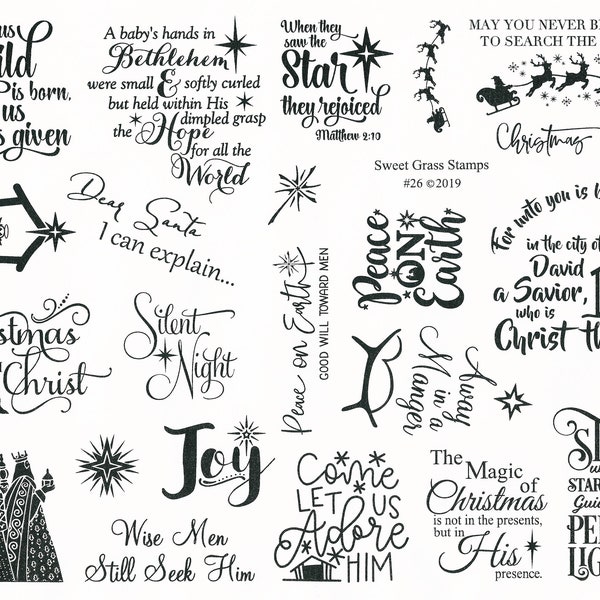 us
is born,
us
given
A baby's hands in
Bethlehem
were small & softly curled
but held within His
dimpled grasp
the Hope
for all the
World
When they
saw the
Star
they rejoiced
Matthew 2:10
MAY YOU NEVER B
TO SEARCH THE
Christmas
Sweet Grass Stamps
#26 ©2019
Dear Santa
I can explain...
Peace on Earth
GOOD WILL TOWARD MEN
Peace
ON
Earth
For unto you is b
in the city of
David
a Savior,
who is
Christ th
Christ
Silent
Night
Away
in a
Manger
Joy
Wise Men
Still Seek Him
Come
LET US
Adore
HIM
The Magic
of
Christmas
is not in the presents,
but in
His
presence.
STAR
Guid